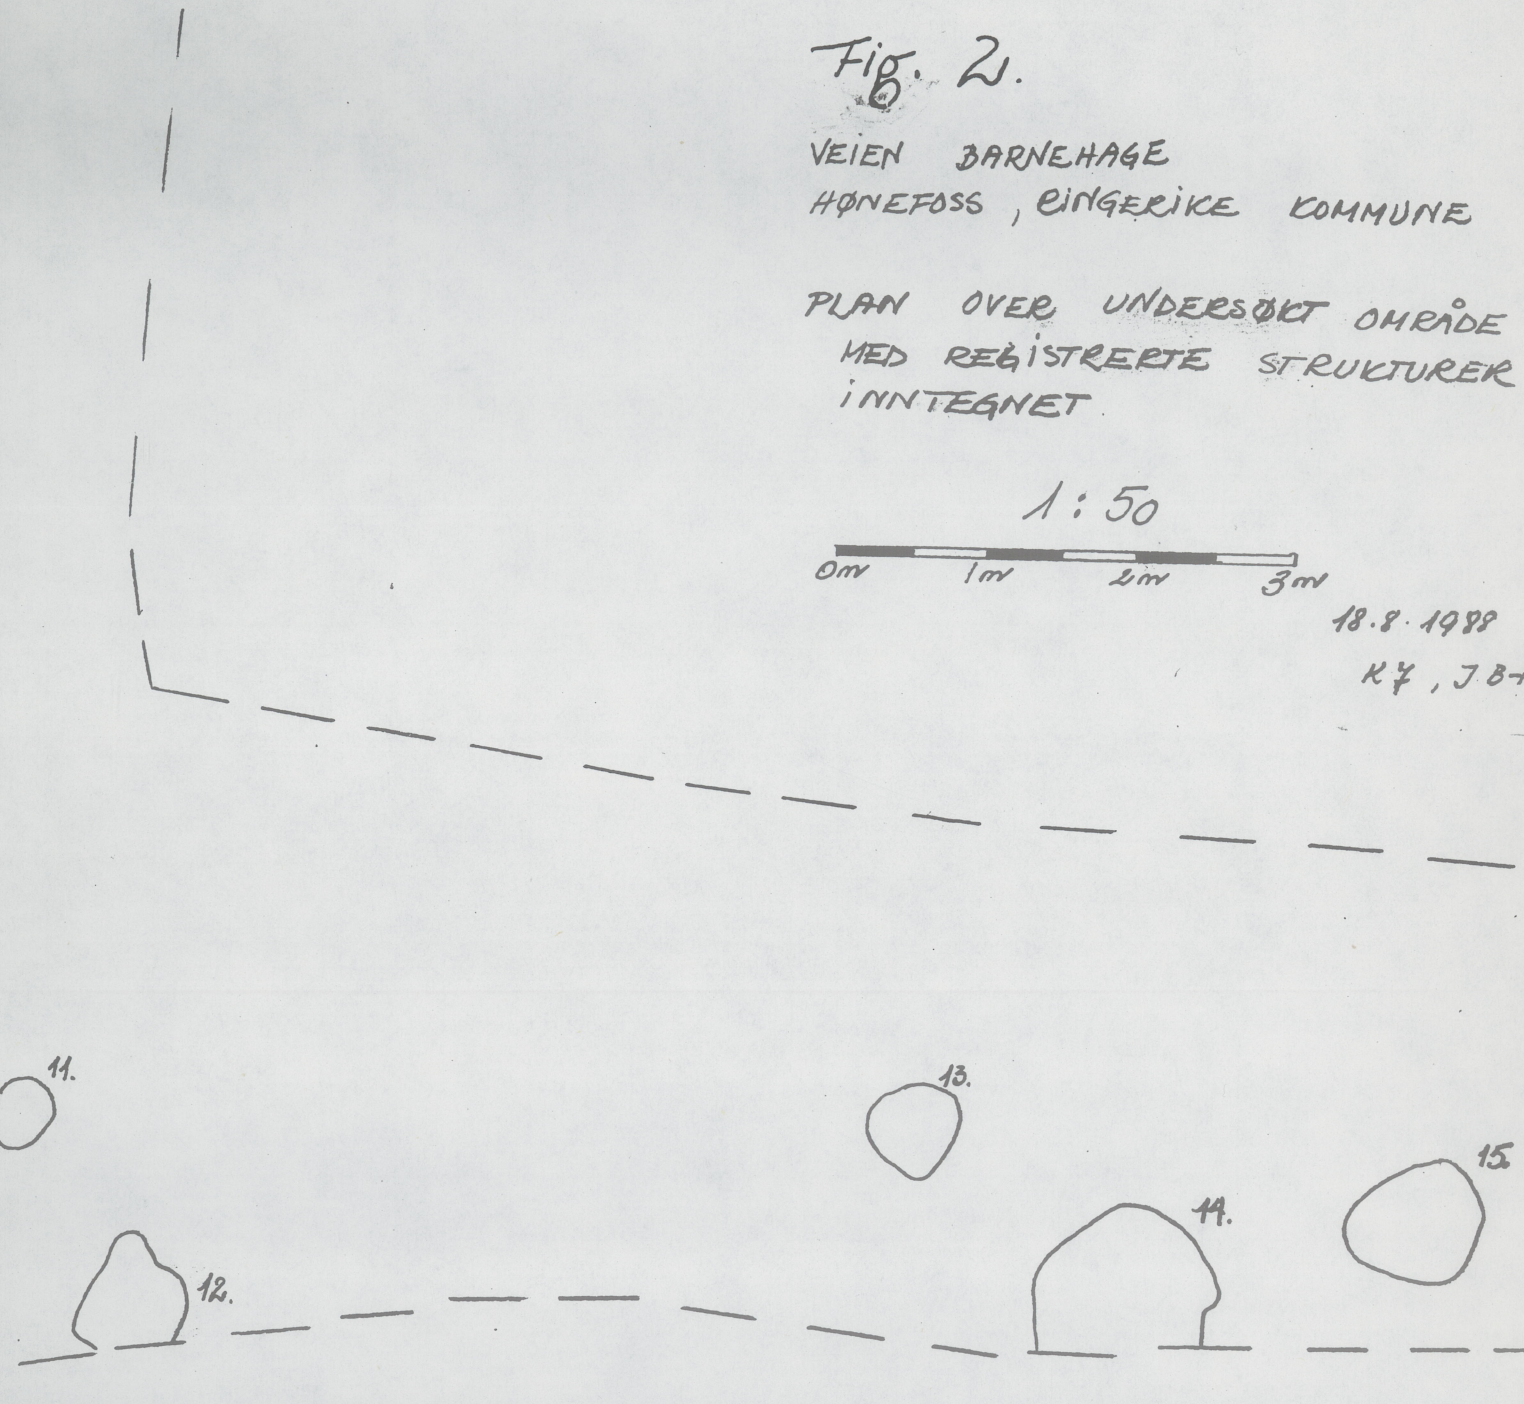 Fig. 2.
VEIEN BARNEHAGE
HØNEFOSS, RINGERIKE KOMMUNE
PLAN OVER UNDERSØKT OMRÅDE
MED REGISTRERTE STRUKTURER
INNTEGNET.
1:50
0m 1m 2m 3m
18.8.1988
K7, JB
11.
13.
15.
14.
12.